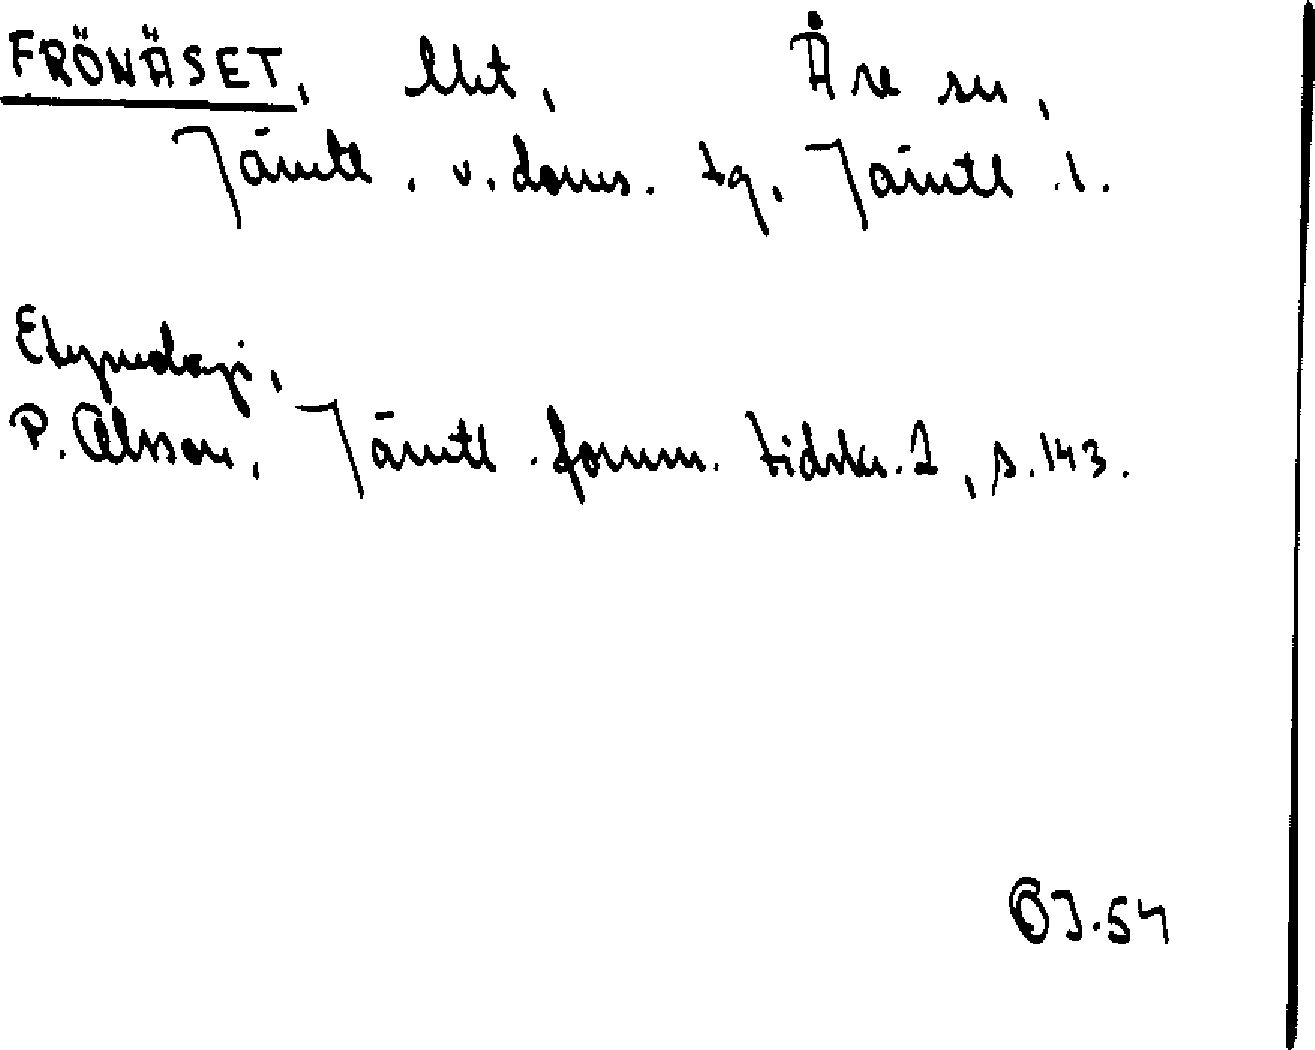 FRÖNÄSET, Åre sn,
Jämtl. v. doms. tg, Jämtl. l.
Etymologi,
P. Olsson, Jämtl. fornm. tidskr. 2, s. 143.
ÖJ. 54